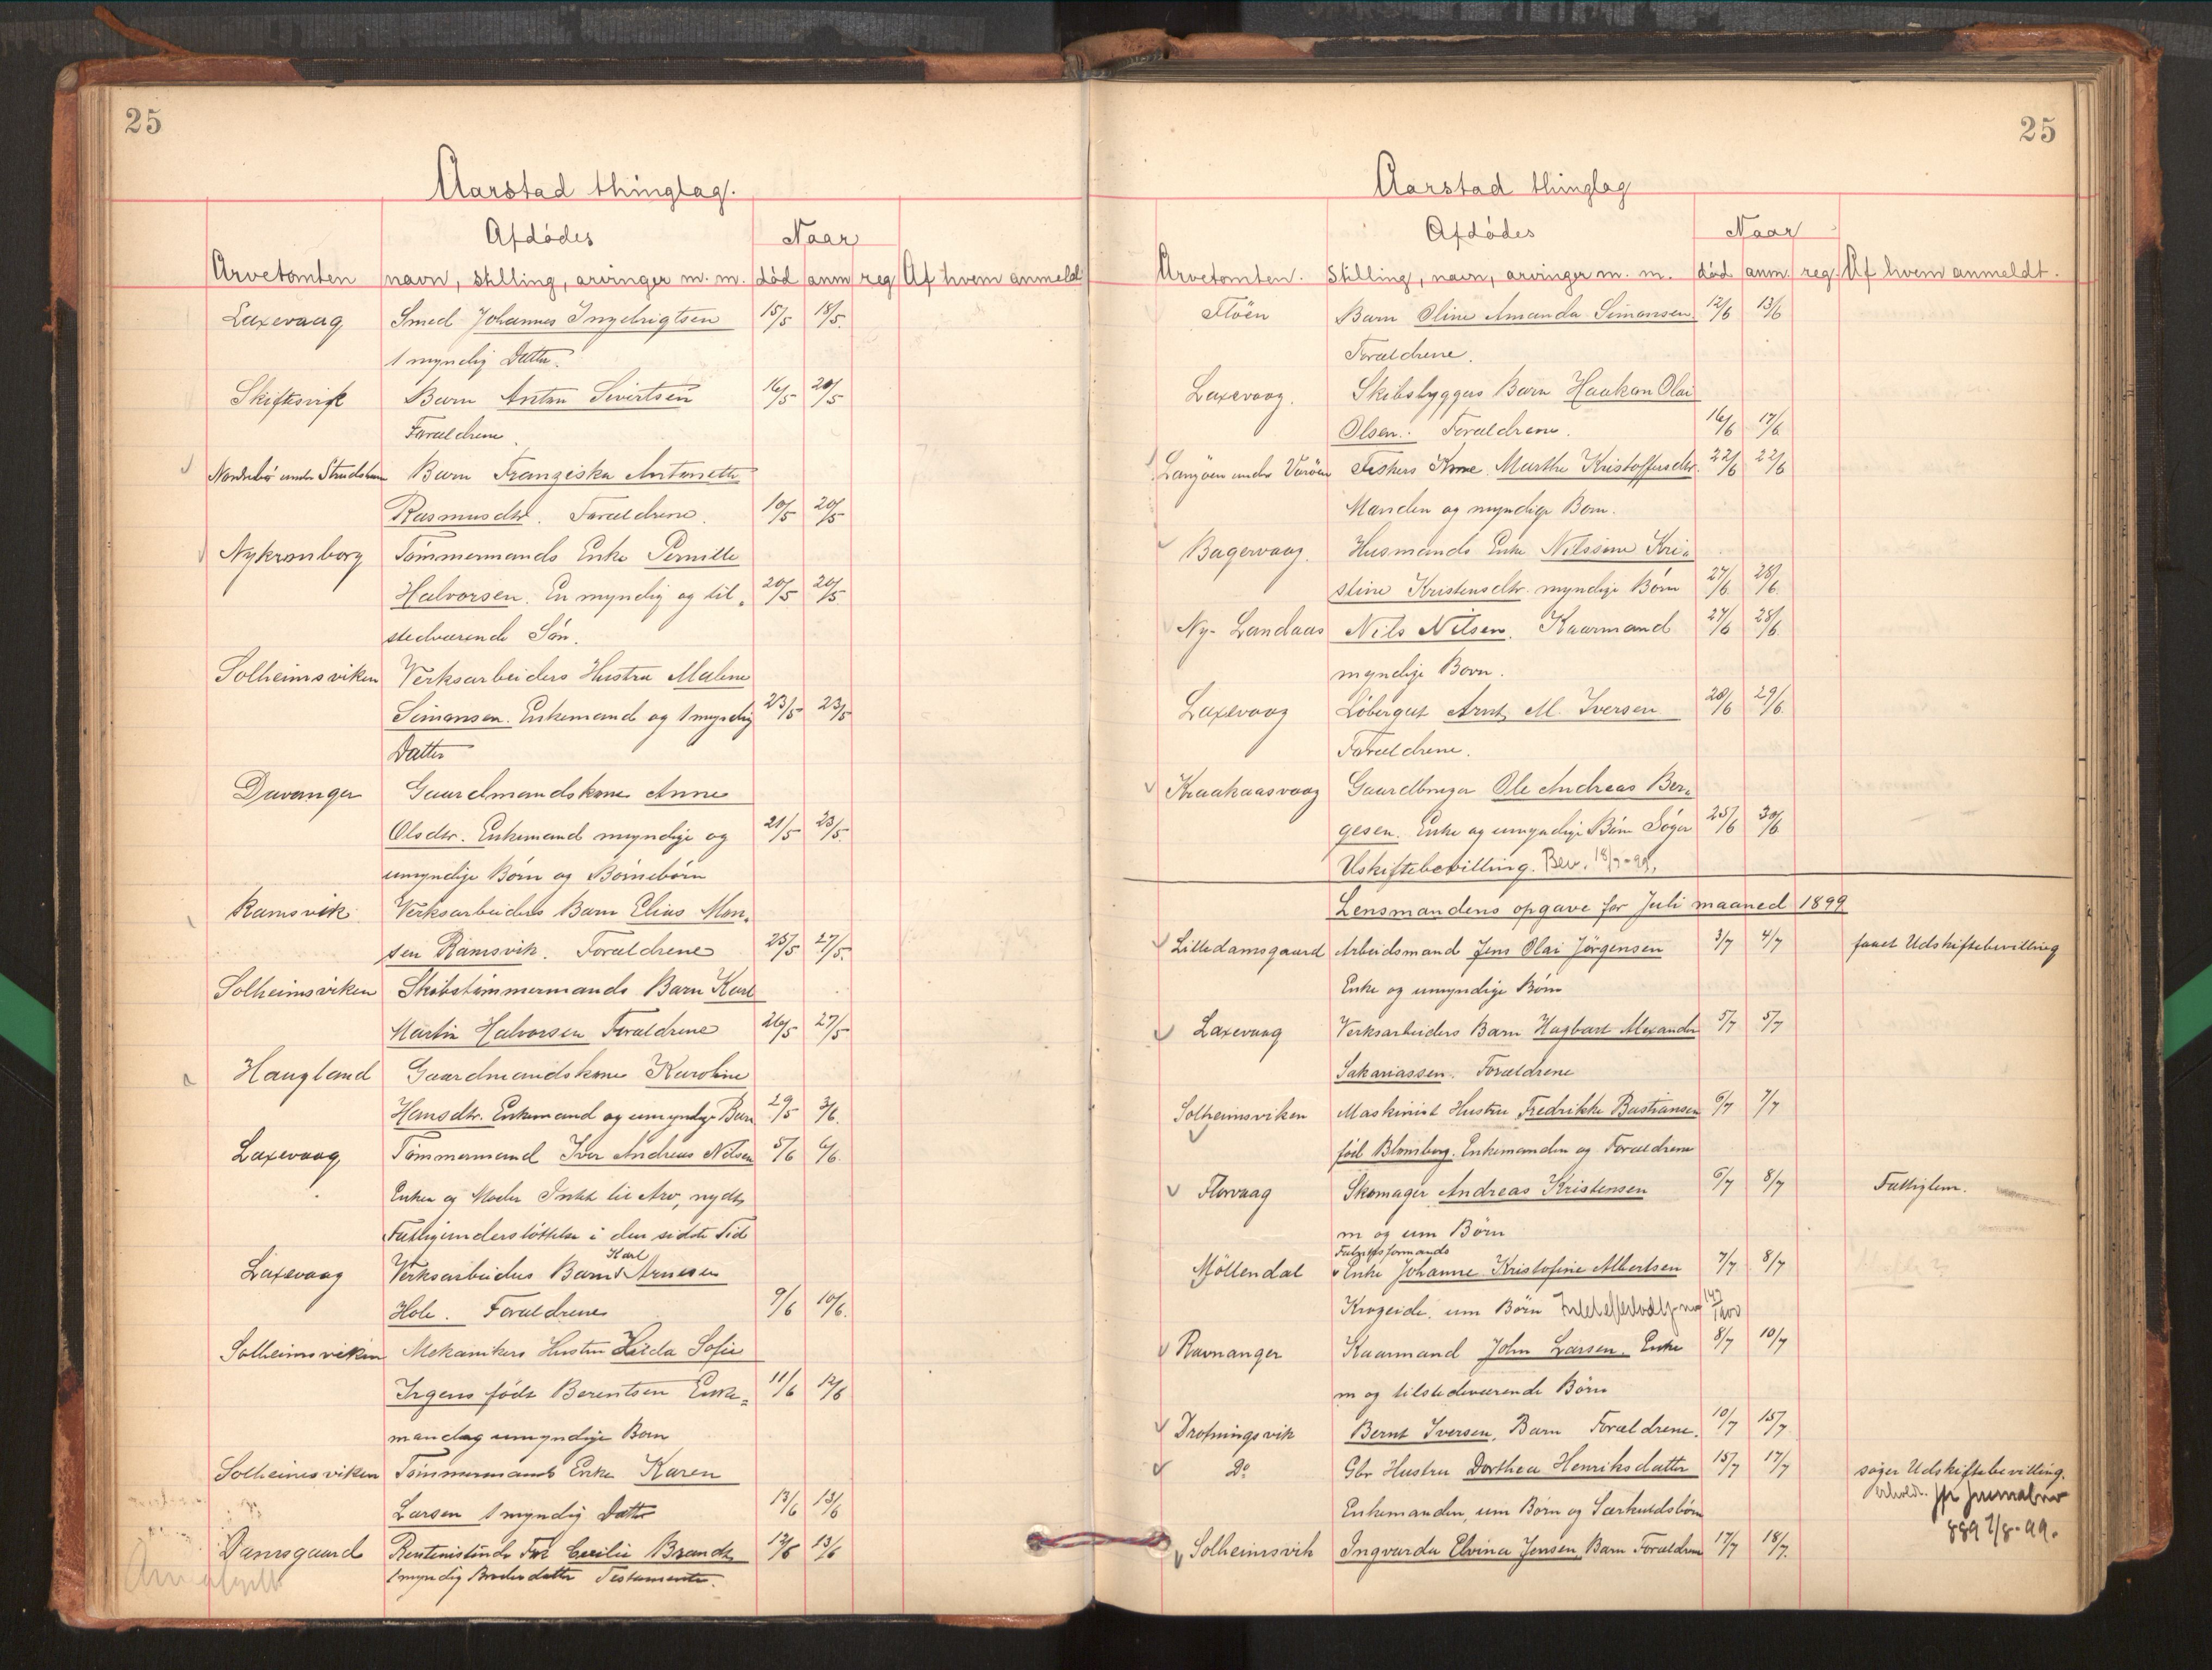 25
Aarstad thinglag.
Afdødes
Naar
Arvetomten navn, stilling, arvinger m. m. død anm reg Af hvem anmeldt
Laxevaag Smed Johannes Ingebrigtsen 15/5 18/5.
1 myndig Datter.
Skiftesvik Barn Anton Sivertsen 16/5 20/5
Forældrene.
Barn Franziska Antonette
Rasmusdtr. Forældrene. 10/5 20/5
Nykronborg Tömmermands Enke Pernille
Halvorsen. En myndig og til„ 20/5 20/5
stedværende Sön.
Solheimsviken Verksarbeiders Hustru Malene
Simonsen. Enkemand og 1 myndig 23/5 23/5
Datter
Davanger Gaardmandskone Anne
Olsdtr. Enkemand myndige og 21/5 23/5.
umyndige Börn og Börnebörn
Ramsvik Verksarbeiders Barn Elias Mon„
sen Ramsvik. Forældrene 25/5 27/5.
Solheimsviken Skibstömmermands Barn Karl
Martin Halvorsen Forældrene 26/5 27/5
Haugland Gaardmandskone Karoline
Hansdtr. Enkemand og umyndige Barn 29/5 3/6.
Laxevaag Tömmermand Iver Andreas Nilsen 5/6 6/6.
Enken og Moder Intet til Arv, nydt
Fattigunderstöttelse i den sidste Tid
Karl
Laxevaag Verksarbeiders Barn Arnesen
Hole. Forældrene 9/6 10/6.
Solheimsviken Mekanikers Hustru Hilda Sofie
Irgens födt Berentsen Enke„ 11/6 12/6
mand og umyndige Born
Solheimsviken Tömmermands Enke Karen
Larsen 1 myndig Datter 13/6 13/6
Damsgaard Rentenistinde Frk Cecilie Brandt 12/6 13/6
1 myndig Broderdatter Testamente.
25
Aarstad thinglag
Afdødes
Naar
Arvetomten. Stilling, navn, arvinger m. m. død anm. reg. Af hvem anmeldt.
Flöen Barn Oline Amanda Simonsen 12/6 13/6
Forældrene.
Laxevaag. Skibsbyggers Barn Haakon Olai
Olsen. Forældrene. 16/6 17/6
Langöen under Fiskers Kone Marthe Kristoffersdtr. 22/6 22/6
Manden og myndige Born.
Bagervaag. Husmands Enke Nilssine Kri„
stine Kristensdtr. myndige Börn 27/6 28/6.
Ny-Landaas Nils Nilsen. Kaarmand 27/6 28/6.
myndige Born.
Laxevaag Löbergut Arnt M. Iversen 28/6 29/6.
Forældrene.
Kraakaasvaag Gaardbruger Ole Andreas Ber„
gesen. Enke og umyndige Börn Söger 25/6 30/6
Uskiftebevilling. Bev. 18/7-99.
Lensmandens opgave for Juli maaned 1899
Lilledamsgaard Arbeidsmand Jens Olai Jörgensen 3/7 4/7 faaet Udskiftebevilling
Enke og umyndige Börn
Laxevaag Verksarbeiders Barn Hagbart Alexander 5/7 5/7
Sakariassen. Forældrene
Solheimsviken Maskinist Hustru Fredrikke Bastiansen 6/7 7/7
föd Blomberg. Enkemanden og Forældrene
Florvaag Skomager Andreas Kristensen 6/7 8/7 Fattiglem.
m og um Börn
Möllendal Enke Johanne Kristofine Albertsen 7/7 8/7
Krogeide. um Börn
Ravnanger Kaarmand John Larsen. Enke 8/7 10/7
m og tilstedeværende Börn
Drotningsvik Bernt Iversen, Barn Forældrene. 10/7 15/7
Do Gbr Hustru Dorthea Henriksdatter 15/7 17/7 söger Udskiftebevilling.
Enkemanden, um Börn og Særkuldsbörn
889 7/8-99.
Solheimsvik Ingvarda Elvina Jensen Barn Forældrene 17/7 18/7.